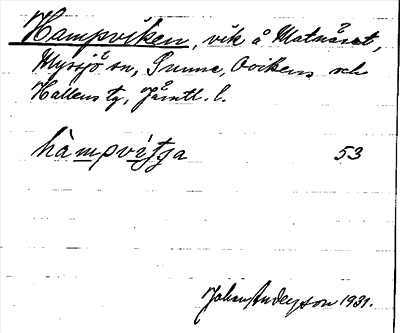 Hampviken, vik å Matnäset,
Myssjö sn, Sunne, Ovikens och
Hallens tg, Jämtl. l.
hàmpvítja 53
Johan Anderson 1931.